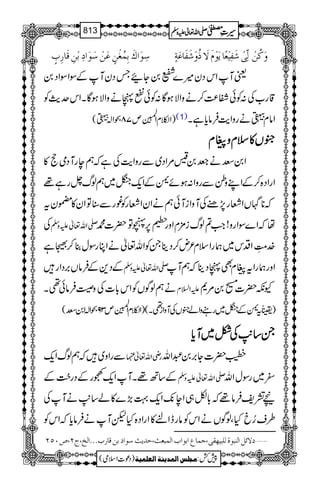 سیرتِ مصطفیٰ صلی اللہ تعالیٰ علیہ وسلم 813
وَکُنْ لِّیْ شَفِیْعًا یَّوْمَ لَا ذُوْ شَفَاعَۃٍ سِوَاکَ بِمُغْنٍ عَنْ سَوَادِ بْنِ قَارِبٖ
یعنی آپ اس دن میرے شفیع بن جائیے جس دن آپ کے سوا سواد بن
قارب کی نہ کوئی شفاعت کرنے والا ہوگا نہ کوئی نفع پہنچانے والا ہوگا۔ اس حدیث کو
امام بیہقی نے روایت فرمایا ہے۔(1) (الکلام المبین ص۸۷ بحوالہ بیہقی)
جنوں کا سلام و پیغام
ابن سعد نے جعد بن قیس مرادی سے روایت کی ہے کہ ہم چار آدمی حج کا
ارادہ کرکے اپنے وطن سے روانہ ہوئے یمن کے ایک جنگل میں ہم لوگ چل رہے تھے
کہ ناگہاں اشعار پڑھنے کی آواز آئی ہم نے ان اشعار کو غور سے سنا تو ان کا مضمون یہ
تھا کہ اے سوارو! جب تم لوگ زمزم اور حطیم پر پہنچو تو حضرت محمد صلی اللہ تعالیٰ علیہ وسلم کی
خدمتِ اقدس میں ہمارا سلام عرض کر دینا جن کو اللہ تعالیٰ نے اپنا رسول بنا کر بھیجا ہے
اور ہمارا یہ پیغام بھی پہنچا دینا کہ ہم آپ صلی اللہ تعالیٰ علیہ وسلم کے دین کے فرماں بردار ہیں
کیونکہ حضرت مسیح بن مریم علیہ السلام نے ہم لوگوں کو اس بات کی وصیت فرمائی تھی۔
(یقیناً یہ یمن کے جنگل میں رہنے والے جنوں کی آواز تھی۔) (الکلام المبین ص۹۳ بحوالہ ابن سعد)
جن سانپ کی شکل میں آیا
خطیب حضرت جابر بن عبداللہ رضی اللہ تعالیٰ عنہما سے راوی ہیں کہ ہم لوگ ایک
سفر میں رسول اللہ صلی اللہ تعالیٰ علیہ وسلم کے ساتھ تھے۔ آپ ایک کھجور کے درخت کے
نیچے تشریف فرما تھے کہ بالکل ہی اچانک ایک بہت بڑے کالے سانپ نے آپ کی
طرف رُخ کیا، لوگوں نے اس کو مار ڈالنے کا ارادہ کیا لیکن آپ نے فرمایا کہ اس کو
......دلائل النبوۃ للبیہقی، جماع ابواب المبعث، حدیث سواد بن قارب...الخ، ج۲، ص ۲۵۰
پیش کش: مجلس المدینۃ العلمیۃ (دعوتِ اسلامی)